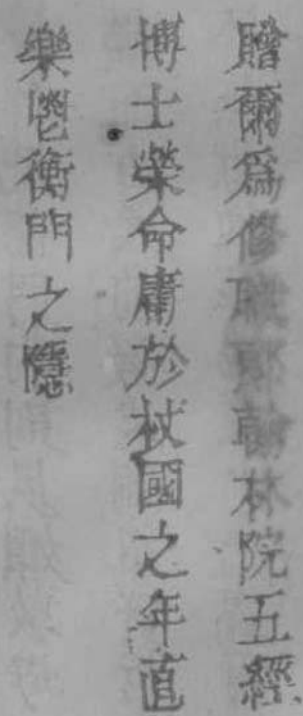 贈爾爲修職郎翰林院五經
博士榮命膺於杖國之年直
樂邕衡門之隱